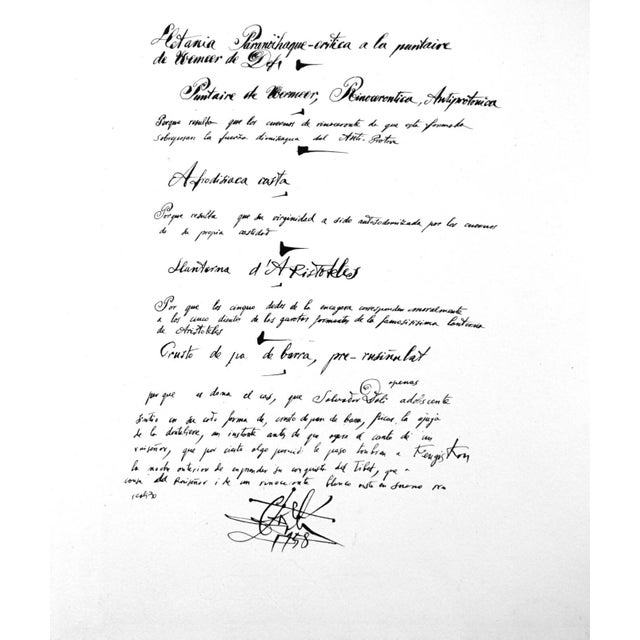 Lletania Paranoihaque-critica a la puntaire
de Vermeer de Delf
Puntaire de Vermeer, Rinocerontica, Antiprotonica
Porque resulta que los cuernos de rinoceronte de que esta formada
sobrepasan la fuerza dimisiaqua del Anti-Proton
Afrodisiaca casta
Porque resulta que su virginidad a sido autosodomizada por los cuernos
de su propia castidad
Llanterna d'ARistoteles
Por que los cinquo dedos de la encagera corresponden moralmente
a los cinco dientes de los garotes formantes de la famosisisima lanterna
de Aristoteles
Crusto de pa de barra, pre-rusiñulat
por que se dema el cas, que Salvador Dali apenas adolscente
sintio en su codo forma de, crosto de pan de barra, picar la ajuja
de la dentelière, un instante antes de que oyera el canto de un
ruiseñor, que por cierto algo parecido le paso tambien a Kengis Kan
la noche anterior de emprender su conquista del Tibet, que a
causa del Ruiseñor i de un rinoceronte blanco visto en sueno
1958